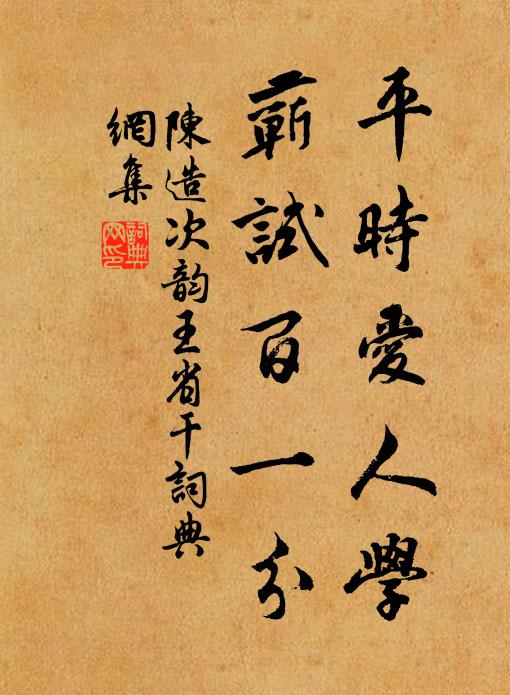 平時愛人學
蘄試百一分
陳造次韵王省干詞典
網集
詞典網印